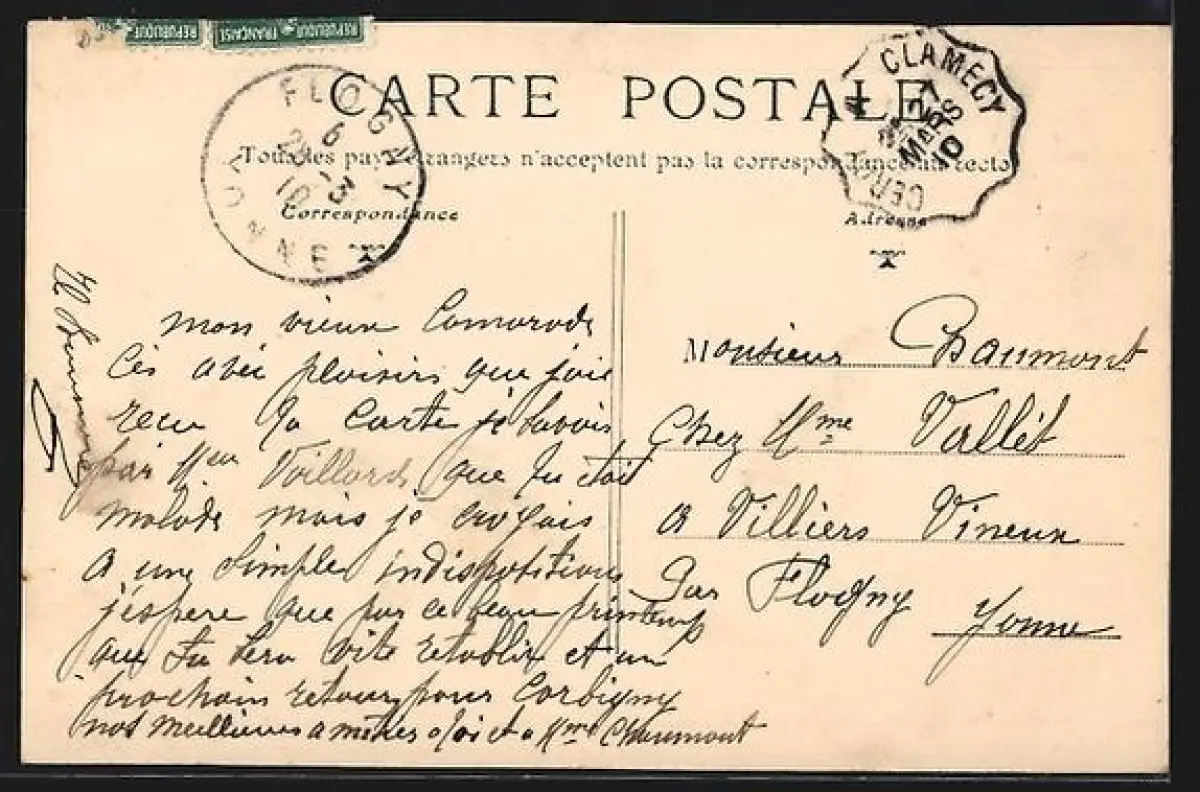 RÉPUBLIQUE FRANÇAISE
RÉPUBLIQUE
CARTE POSTALE
Tous les pays étrangers n'acceptent pas la correspondance au recto
Correspondance
Adresse
FLOGNY
6
28-3
10
YONNE
CLAMECY
27
MARS
10
CERCY
mon vieux Camarade
Cès avec plaisirs que j'oie
recu Ta Carte je savois
par Mr Voillard que tu étoit
malade mais je croyais
a une simple indispotitions
j'éspere que par ce beau printemp
que tu sera vite retablir et un
prochain retour pour Corbigny
nos meillieures amitiés a toi et a Mme Chaumont
Monsieur Chaumont
Chez Mme Vallét
a Villiers Vineux
Par Flogny
Yonne